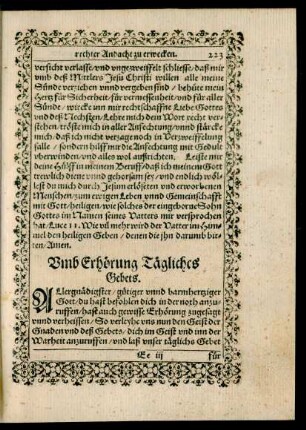 rechter Andacht zu erwecken. 223
versicht verlasse/vnd vngezweiffelt schliesse/daß mir
vmb deß Mitlers Jesu Christi willen alle meine
Sünde verziehen vnnd vergeben sind / behüte mein
Hertz für Sicherheit/für vermessenheit/vnd für aller
Sünde / wircke inn mir rechtschaffne Liebe Gottes
vnd deß Nechsten/Lehre mich dein Wort recht ver-
stehen/tröste mich in aller Anfechtung/vnnd stärcke
mich/daß ich nicht verzage noch in Verzweiffelung
falle / sondern hilff mir die Anfechtung mit Gedult
vberwinden/vnd alles wol außrichten. Leiste mir
deine Hülff in meinem Beruff/daß ich meinem Gott
trewlich diene vnnd gehorsam sey/vnd endlich wöl-
lest du mich durch Jesum erlöseten vnd erworbenen
Menschen/zum ewigen Leben vnnd Gemeinschafft
mit Gott/heiligen/wie solches der eingeborne Sohn
Gottes im Namen seines Vatters mir versprochen
hat/Luce 11. Wie vil mehr wird der Vatter im Him-
mel den heiligen Geben / denen die jhn darumb bit-
ten/Amen.
Vmb Erhörung Tägliches
Gebets.
ALlergnädigster/ gütiger vnnd barmhertziger
Gott/du hast befohlen dich in der noth anzu-
ruffen/hast auch gewisse Erhörung zugesagt
vnnd verheissen/ So verleyhe vns nun den Geist der
Gnaden vnd deß Gebets/ dich im Geist vnd inn der
Warheit anzuruffen /vnd laß vnser täglichs Gebet
Ee iij für